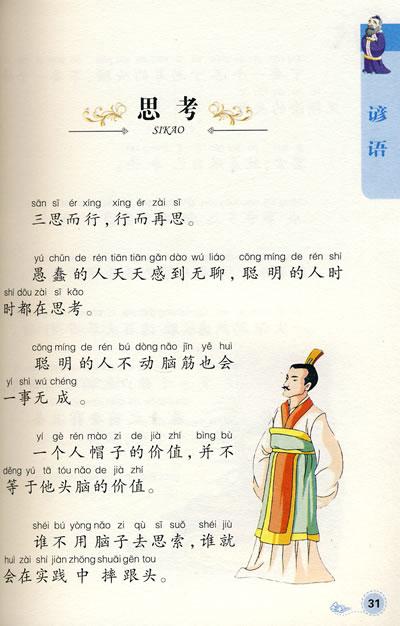 谚语
思考
SIKAO
sān sī ér xíng xíng ér zài sī
三思而行,行而再思。
yú chǔn de rén tiān tiān gǎn dào wú liáo cōng míng de rén shí
愚蠢的人天天感到无聊,聪明的人时
shí dōu zài sī kǎo
时都在思考。
cōng míng de rén bú dòng nǎo jīn yě huì
聪明的人不动脑筋也会
yí shì wú chéng
一事无成。
yí gè rén mào zi de jià zhí bìng bù
一个人帽子的价值,并不
děng yú tā tóu nǎo de jià zhí
等于他头脑的价值。
shéi bú yòng nǎo zi qù sī suǒ shéi jiù
谁不用脑子去思索,谁就
huì zài shí jiàn zhōng shuāi gēn tou
会在实践中摔跟头。
31